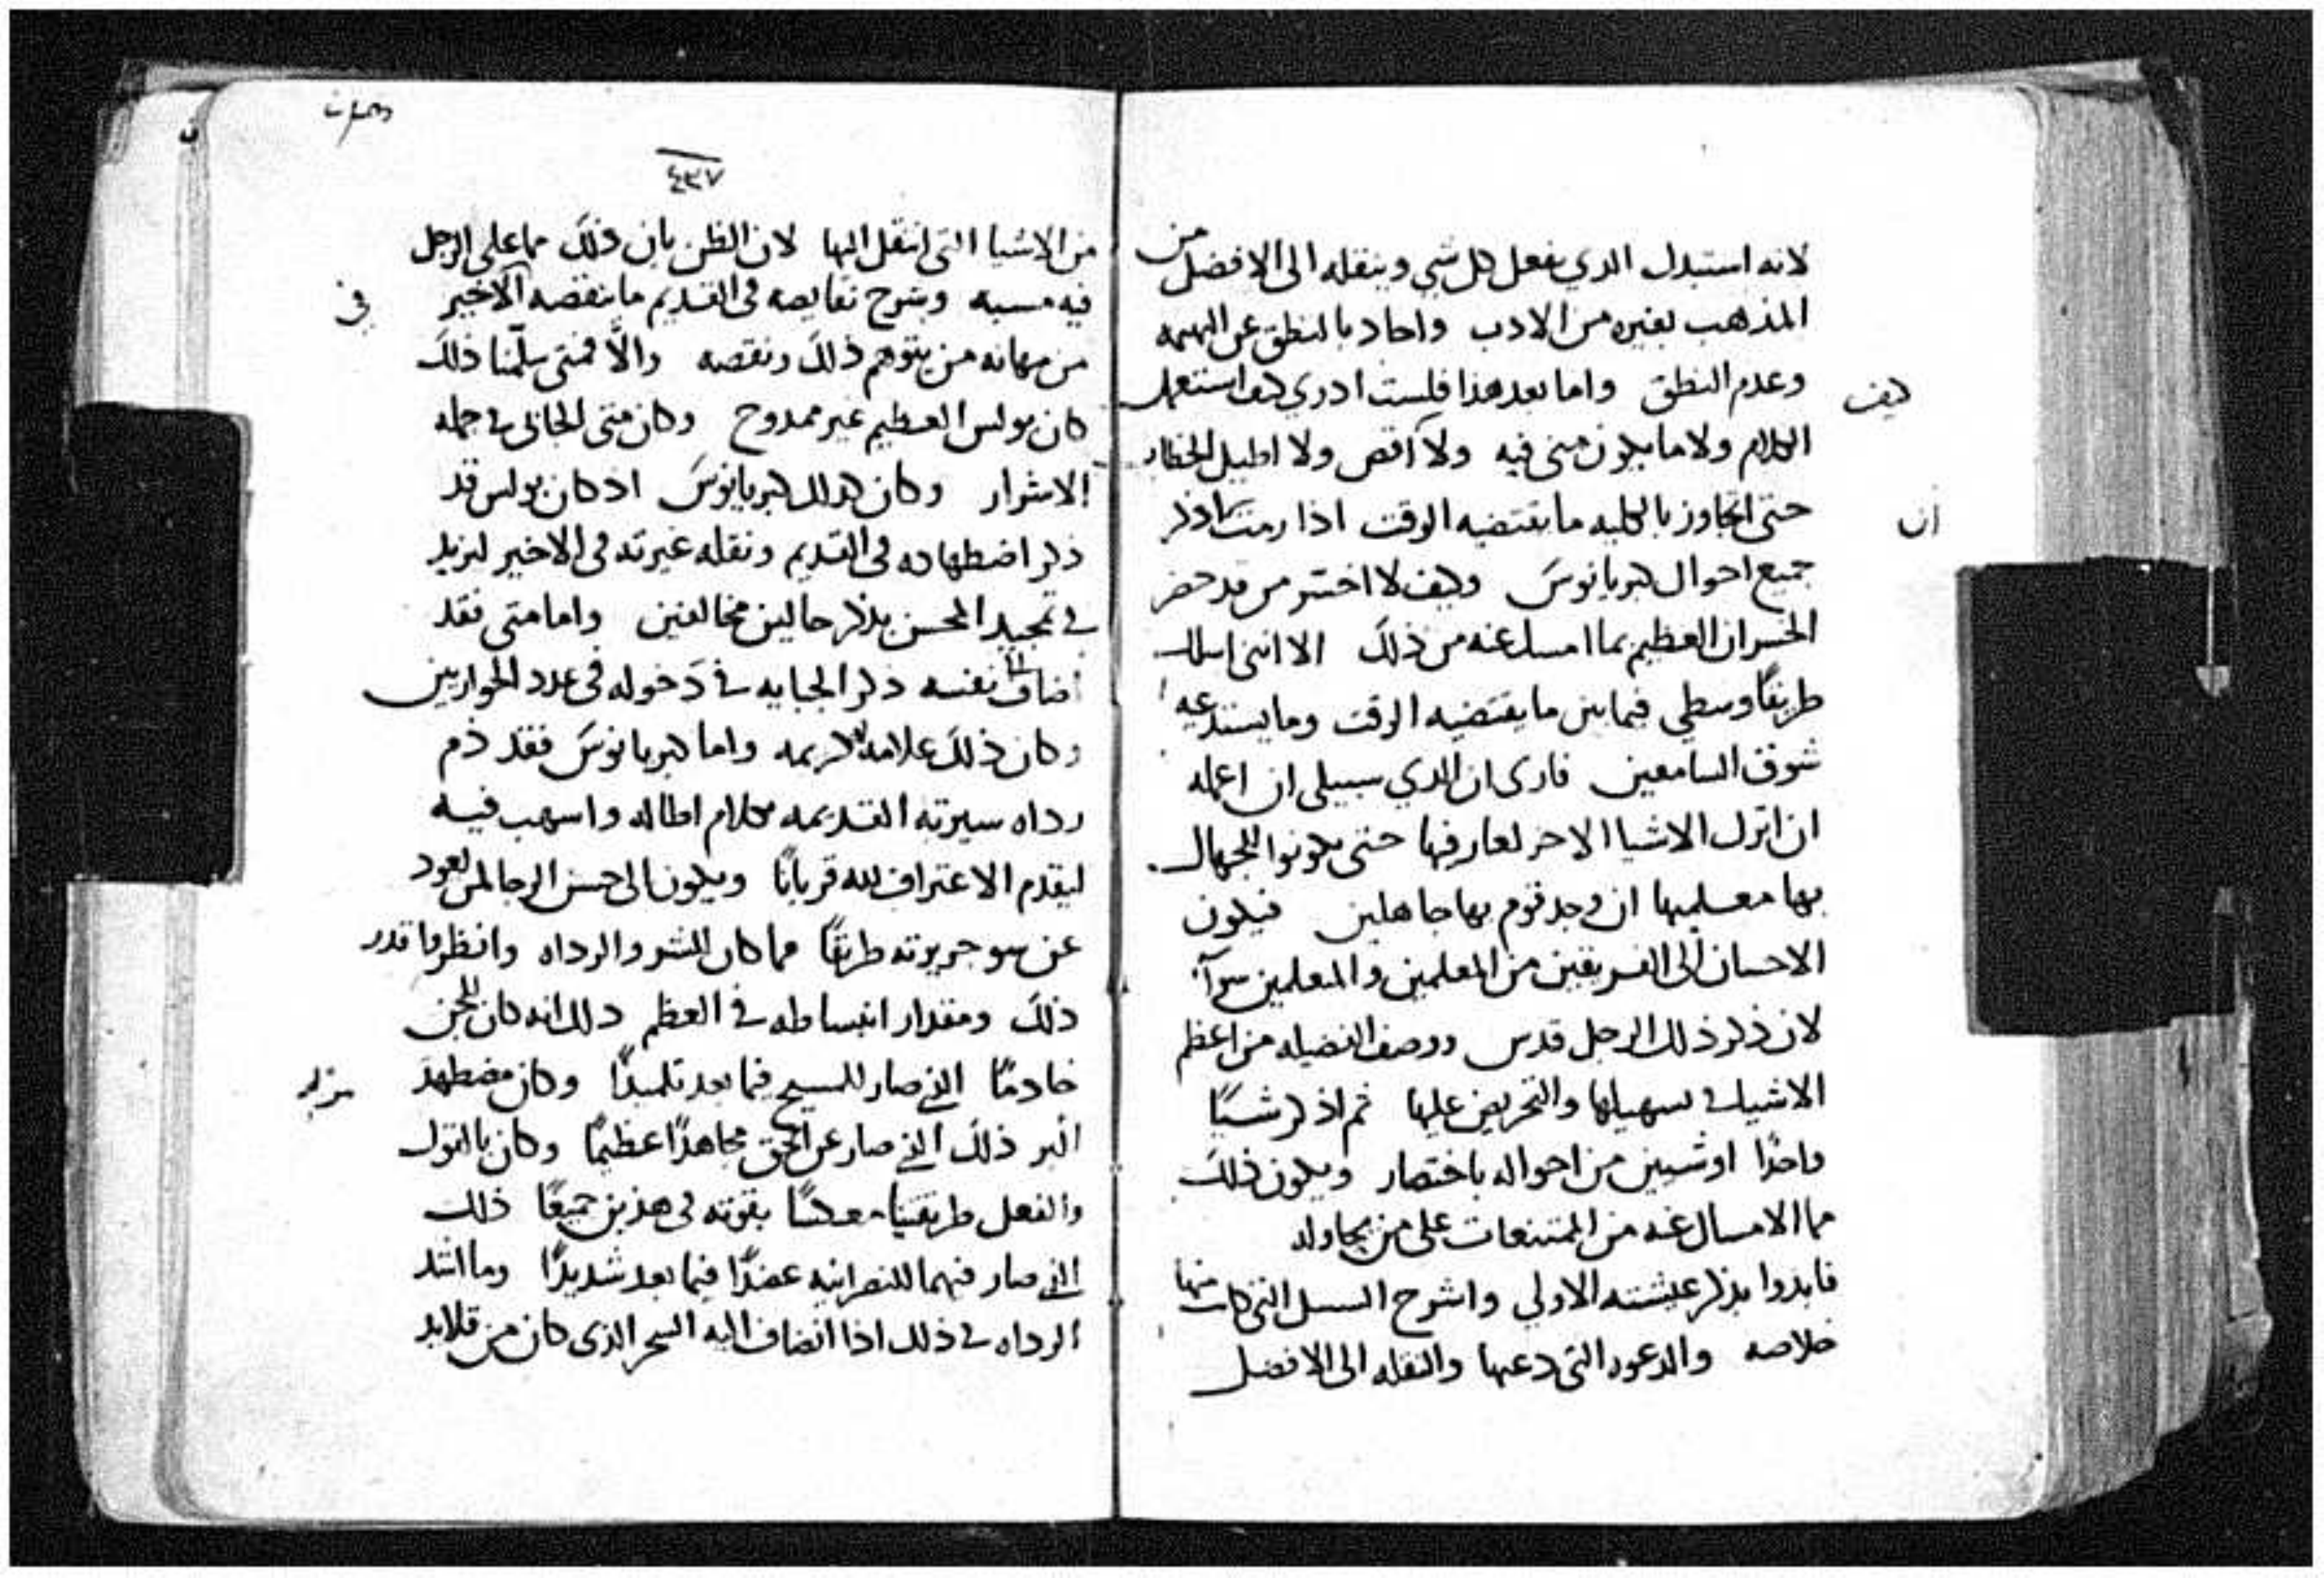 لانه استبدل الدي يفعل كل شي وينقله الى الافضل من
المذهب بغيره من الادب واحاد بالنطق عن البهيمه
وعدم النطق واما بعد هذا فلست ادري كيف استعمل
كيف
الكلام ولا ما يكون مني فيه ولا اقص ولا اطيل الخطاب
حتى اتجاوز بالكليه ما يقتضيه الوقت اذا رمت اذكر
ان
جميع احوال كبريانوس وكيف لا اخسر من قد حضر
الخسران العظيم بما امسك عنه من ذلك الا انني اسلك
طريقًا وسطي فيما بين ما يقتضيه الوقت وما يستدعيه
شوق السامعين فارى ان الدي سبيلي ان اعمله
ان اترك الاشيا الاخر لعارفيها حتى يكونوا للجهال
بها معلميها ان وجد قوم بها جاهلين فيكون
الاحسان الى الفريقين من المعلمين والمتعلمين سوآ
لان ذكر ذلك الرجل قدس ووصف الفضيله من اعظم
الاشيا في تسهيلها والتحريض عليها ثم اذكر شيًا
واحدًا او شيين من احواله باختصار ويكون ذلك
مما الامساك عنه من الممتنعات على من يحاوله
فابدوا بذكر عيشته الاولي واشرح السبل التي كان منها
خلاصه والدعوه التي دعيها والنقله الى الافضل
٤٣٧
من الاشيا التي انتقل اليها لان الظن بان ذلك مما على الرجل
فيه مسبه وشرح نقايصه في القديم ما ينقصه الاخير
في
من مهانه من يتوهم ذلك ونقصه والّا فمتى سلّمنا ذلك
كان بولس العظيم غير ممدوح وكان متى الجابي في جمله
الاشرار وكان كدلك كبريانوس اذ كان بولس قد
ذكر اضطهاده في القديم ونقله غيرته في الاخير ليزيد
في تمجيد المحسن بذكر حالين مخالفين واما متى فقد
اضاف الى نفسه ذكر الجبايه في دخوله في عدد الحواريين
وكان ذلك علامه كريمه واما كبريانوس فقد ذم
رداه سيرته القديمه بكلام اطاله واسهب فيه
ليقدم الاعتراف لله قربانًا ويكون الى حسن الرجا لمن يعود
عن سو جريرته طريقًا فما كان الشر والرداه وانظر ما قدر
ذلك ومقدار انبساطه في العظم دلك انه كان للجن
خادمًا الذي صار للمسيح فيما بعد تلميذًا وكان مضطهد
مزيد
اكبر ذلك الذي صار عن الحق مجاهدًا عظيمًا وكان بالقول
والفعل طريقيًا معكسًا بقوته في هذين جميعًا ذلك
الذي صار فيهما للنصرانيه عضدًا فيما بعد شديدًا وما اشد
الرداه في ذلك اذا انضاف اليه السحر الذي كان من قلايد